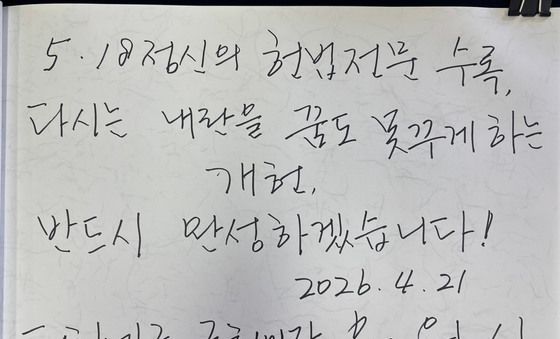 5.18정신의 헌법전문 수록,
다시는 내란을 꿈도 못꾸게 하는
개헌,
반드시 완성하겠습니다!
2026.4.21